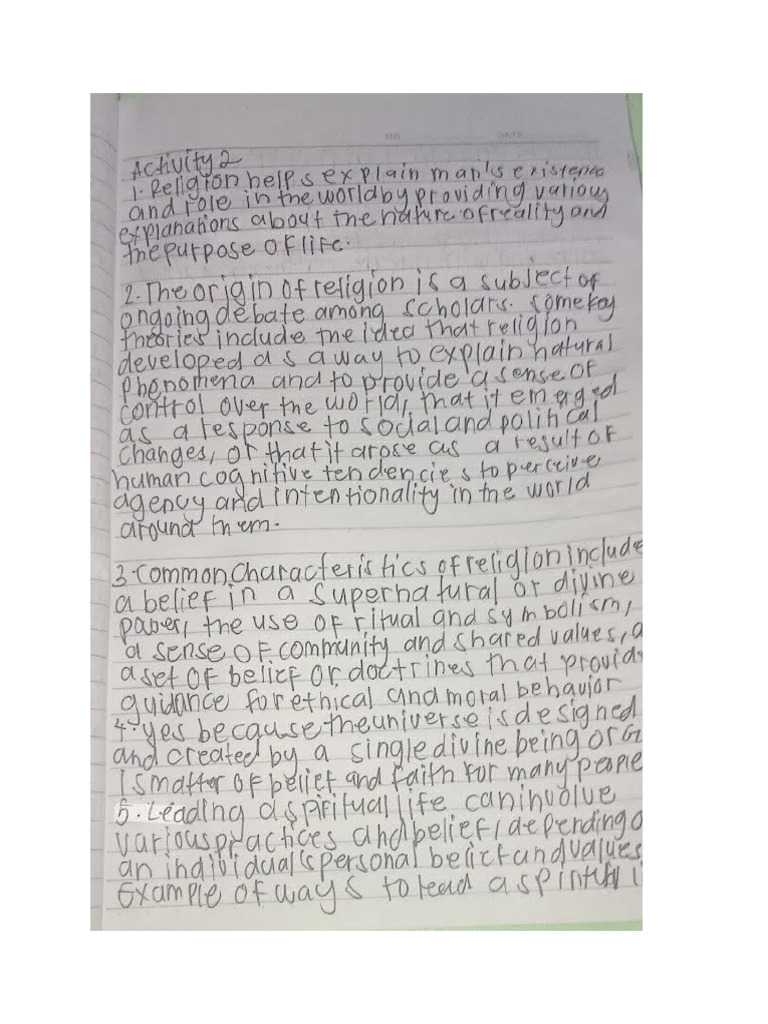 NO. DATE
Activity 2
1. Religion helps explain man's existence
and role in the world by providing various
explanations about the nature of reality and
the purpose of life.
2. The origin of religion is a subject of
ongoing debate among scholars. some key
theories include the idea that religion
developed as a way to explain natural
Phenomena and to provide a sense of
control over the world, that it emerged
as a response to social and political
changes, or that it arose as a result of
human cognitive tendencies to perceive
agency and intentionality in the world
around them.
3. Common, Characteristics of religion include
a belief in a supernatural or divine
power, the use of ritual and symbolism,
a sense of community and shared values, a
a set of belief or doctrines that provid
guidance for ethical and moral behavior
4. yes because the universe is designed
and created by a single divine being or G
is matter of belief and faith for many people
5. Leading a spiritual life can involve
various practices and belief, depending o
an individual's personal belief and values
Example of ways to lead a